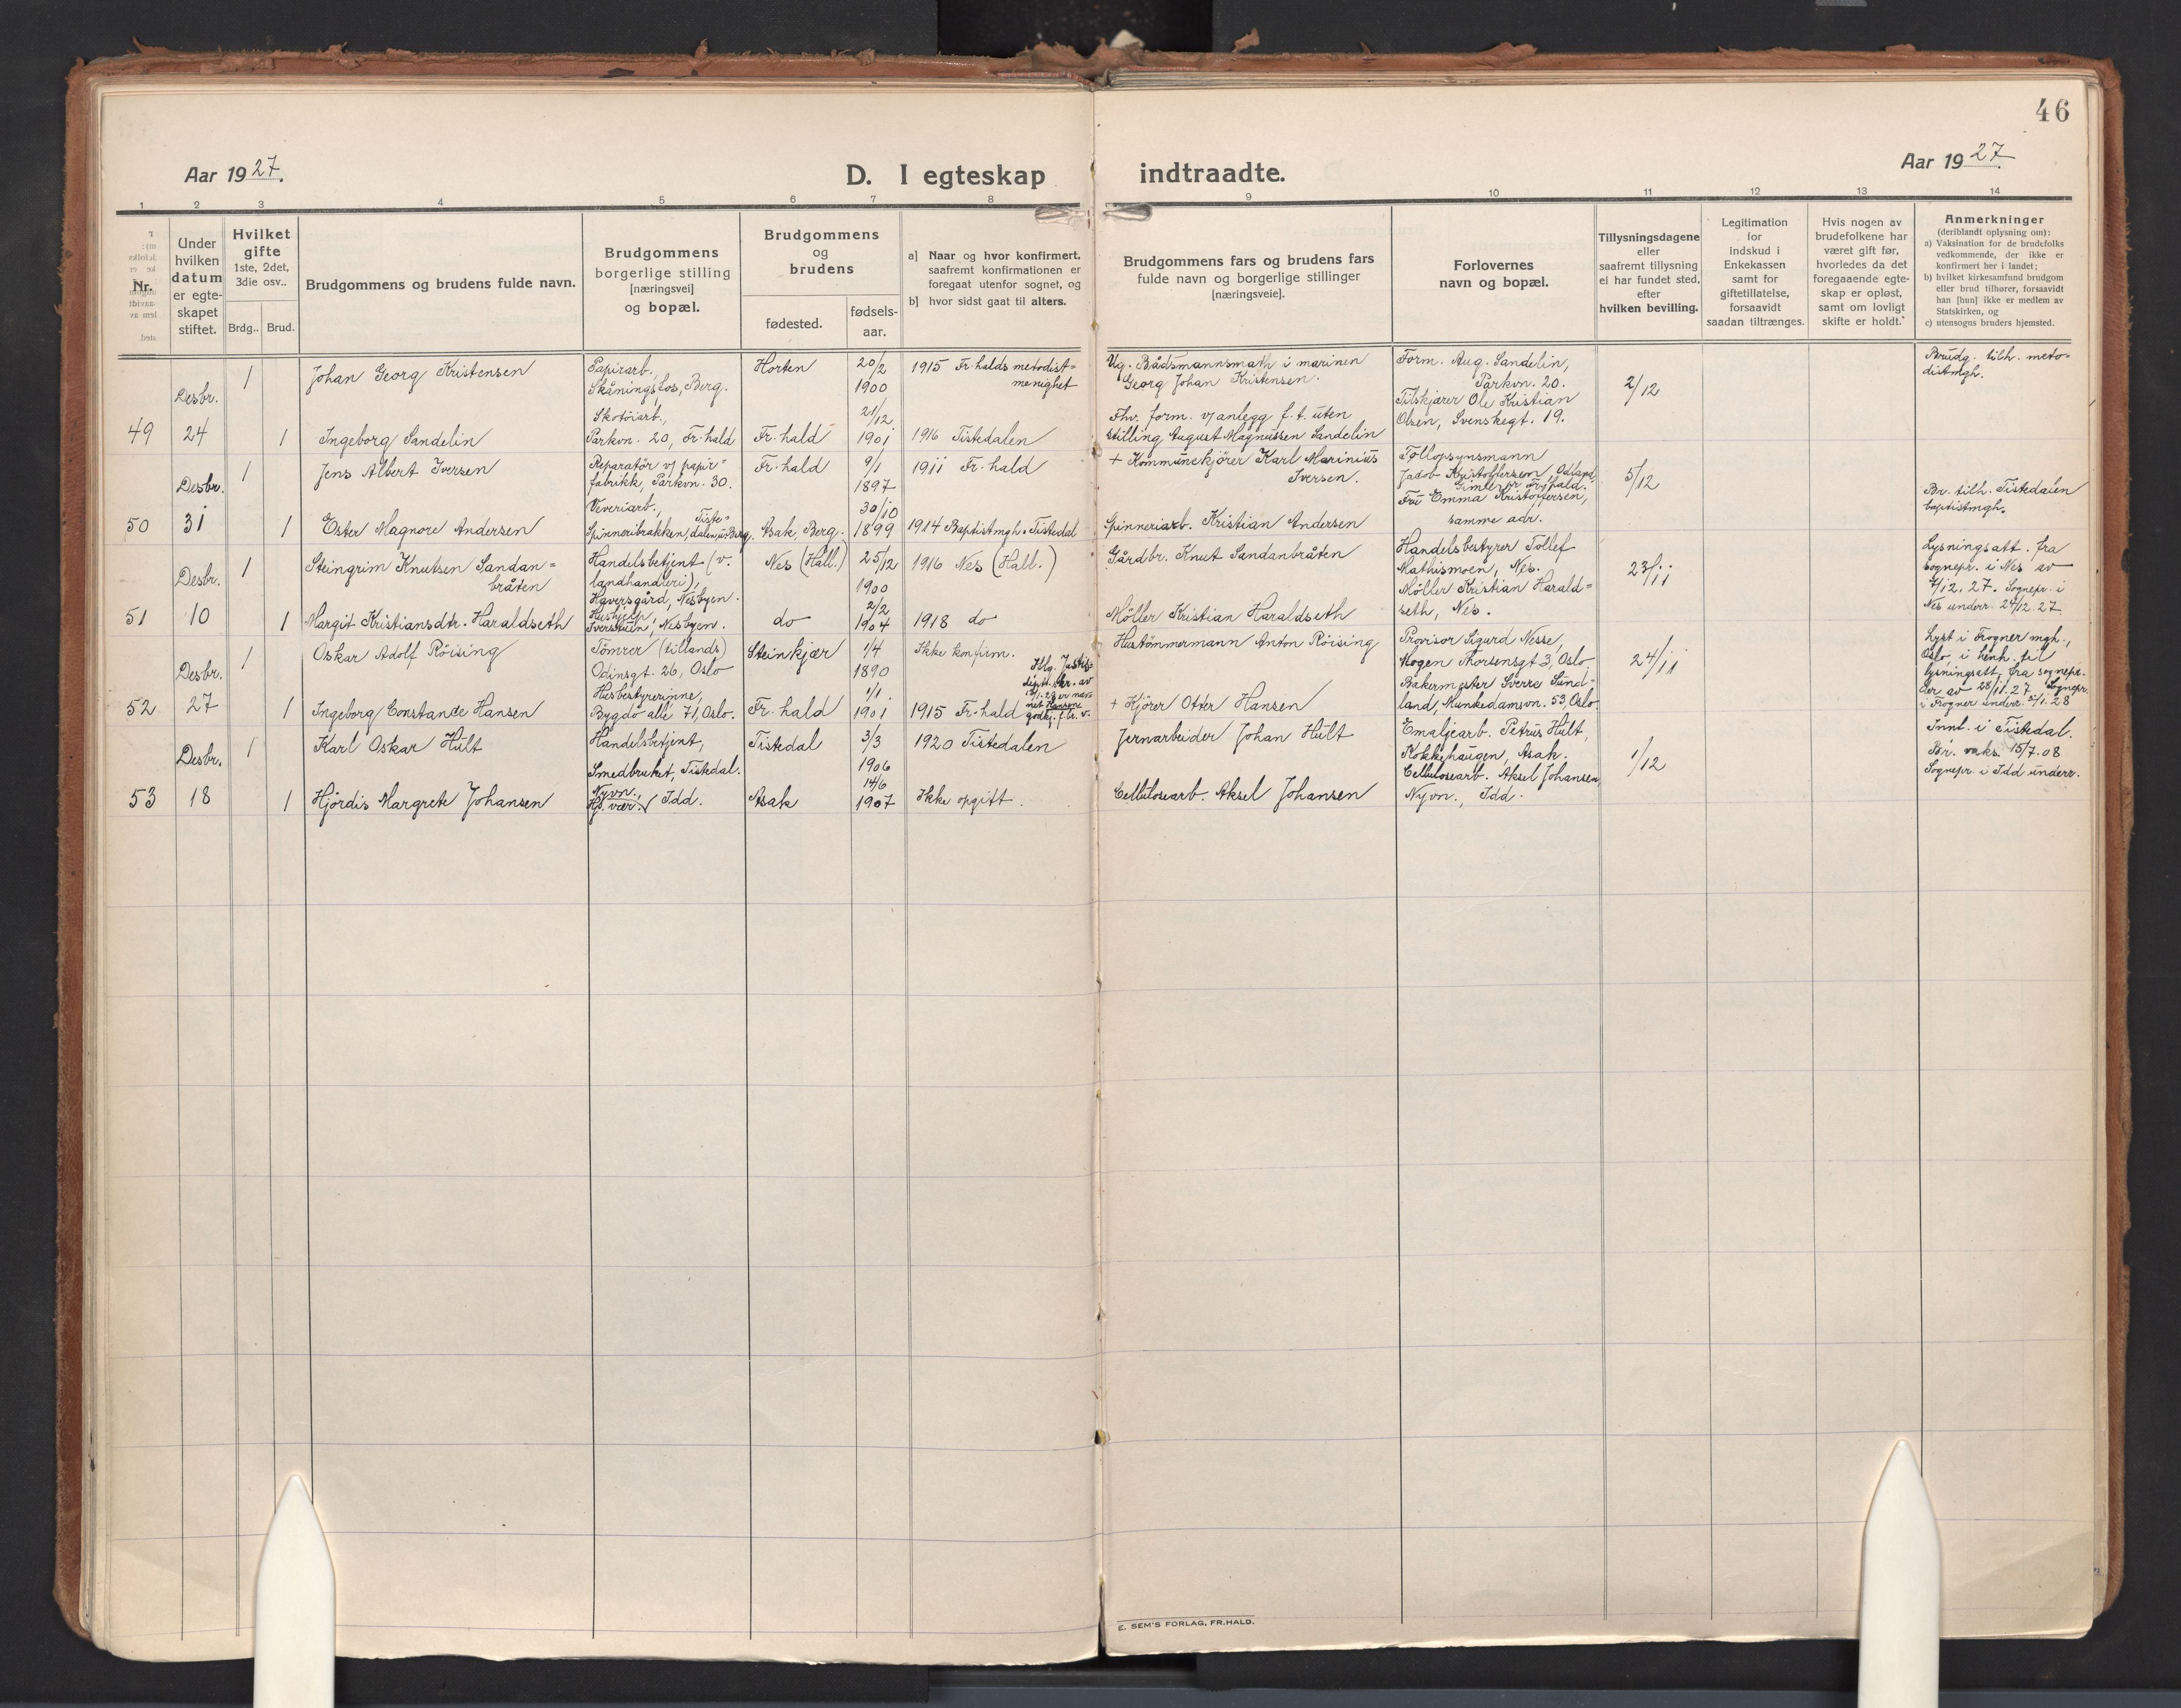 46
Aar 1927.
D. I egteskap indtraadte.
Aar 1927.
1 2 3 4 5 6 7 8 9 10 11 12 13 14
Nr.
Under hvilken datum er egte-skapet stiftet.
Hvilket gifte
1ste, 2det, 3die osv..
Brdg.. Brud.
Brudgommens og brudens fulde navn.
Brudgommens borgerlige stilling [næringsvei] og bopæl.
Brudgommens og brudens
fødested.
fødsels-aar.
a] Naar og hvor konfirmert, saafremt konfirmationen er foregaat utenfor sognet, og
b] hvor sidst gaat til alters.
Brudgommens fars og brudens fars fulde navn og borgerlige stillinger [næringsveie].
Forlovernes navn og bopæl.
Tillysningsdagene eller saafremt tillysning ei har fundet sted, efter hvilken bevilling.
Legitimation for indskud i Enkekassen samt for giftetillatelse, forsaavidt saadan tiltrænges.
Hvis nogen av brudefolkene har været gift før, hvorledes da det foregaaende egte-skap er opløst, samt om lovligt skifte er holdt.
Anmerkninger (deriblandt oplysning om):
a) Vaksination for de brudefolks vedkommende, der ikke er konfirmert her i landet;
b) hvilket kirkesamfund brudgom eller brud tilhører, forsaavidt han [hun] ikke er medlem av Statskirken, og
c) utensogns bruders hjemsted.
49 Desbr. 24
1 Johan Georg Kristensen
Papirarb., Skåningsfos, Berg.
Horten 20/2 1900
1915 Fr.halds metodist=menighet
Bådsmannsmath i marinen Georg Johan Kristensen.
Form. Aug. Sandelin, Parkvn. 20.
2/12
Brudg. tilh. meto=distmgh.
1 Ingeborg Sandelin
Skotöiarb., Parkvn. 20, Fr.hald
Fr.hald 21/12 1901
1916 Tistedalen
Fhv. form. v/anlegg f.t. uten stilling August Magnussen Sandelin
Tilskjærer Ole Kristian Olsen, Svenskegt. 19.
50 Desbr. 31
1 Jens Albert Iversen
Reparatör v/ papir=fabrikk, Parkvn. 30.
Fr.hald 9/1 1897
1911 Fr.hald
+ Kommunekjörer Karl Marinius Iversen.
Tollopsynsmann Jacob Kristoffersen,
5/12
1 Ester Magnore Andersen
Veveriarb., Spinneribrakken, Tiste=dalen, Berg.
Asak, Berg. 30/10 1899
1914 Baptistmgh. Tistedal
Spinneriarb. Kristian Andersen
Fru Emma Kristoffersen, samme adr.
Br. tilh. Tistedalen baptistmgh.
51 Desbr. 10
1 Steingrim Knutsen Sandan=bråten
Handelsbetjent (v. landhandleri), Haversgård, Nesbyen.
Nes (Hall.) 25/12 1900
1916 Nes (Hall.)
Gårdbr. Knut Sandanbråten
Handelsbestyrer Tollef Mathismoen, Nes.
23/11
Lysningsatt. fra sognepr. i Nes av 7/12.27. Sognepr. i Nes underr. 24/12.27
1 Margit Kristiansdtr. Haraldseth
Hushjelp, Iverstuen, Nesbyen.
do 2/2 1904
1918 do
Möller Kristian Haraldseth
Möller Kristian Harald=seth, Nes.
52 Desbr. 27
1 Oskar Adolf Röising
Tömrer (tillands) Odinsgt. 26, Oslo
Steinkjær 1/4 1890
Ikke konfirm.
Hustömmermann Anton Röising
Provisor Sigurd Nesse, Mogen Thorsensgt 3, Oslo
24/11
Lyst i Frogner mgh., Oslo i henh. til lysningsatt. fra sognepr. der av 28/11.27 Sognepr. i Frogner underr. 2/1.28
1 Ingeborg Constance Hansen
Husbestyrerinne, Bygdö allé 71, Oslo.
Fr.hald 1/1 1901
1915 Fr.hald
+ Kjörer Otter Hansen
Bakermester Sverre Sund=land, Munkedamsvn. 53, Oslo.
53 Desbr. 18
1 Karl Oskar Hult
Handelsbetjent, Smedbruket, Tistedal.
Tistedal 3/3 1906
1920 Tistedalen
Jernarbeider Johan Hult
Emaljearb. Petrus Hult, Kokkehaugen, Asak.
1/12
Innl. i Tistedal. Br. vaks. 15/7.08 Sognepr. i Idd underr.
1 Hjördis Margrete Johansen
Nyvn., Hj. vær. Idd.
Asak 14/6 1907
Ikke opgitt.
Cellulosearb. Aksel Johansen
Cellulosearb. Aksel Johansen, Nyvn., Idd.
E. SEM'S FORLAG, FR.HALD.